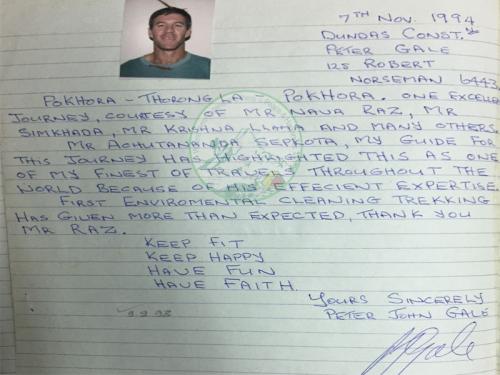 7TH NOV. 1994
DUNDAS CONST.
PETER GALE
125 ROBERT
NORSEMAN 6443
POKHORA - THORONG LA - POKHORA. ONE EXCELLE
JOURNEY, COURTESY OF MR NAVA RAZ, MR
SIMKHADA, MR KRISHNA LLAMA AND MANY OTHERS
MR ACHUTANANDA SEPKOTA, MY GUIDE FOR
THIS JOURNEY HAS HIGHLIGHTED THIS AS ONE
OF MY FINEST OF TRAVELS THROUGHOUT THE
WORLD BECAUSE OF HIS EFFECIENT EXPERTISE.
FIRST ENVIROMENTAL CLEANING TREKKING
HAS GIVEN MORE THAN EXPECTED, THANK YOU
MR RAZ.
KEEP FIT
KEEP HAPPY
HAVE FUN
HAVE FAITH.
YOURS SINCERELY
PETER JOHN GALE